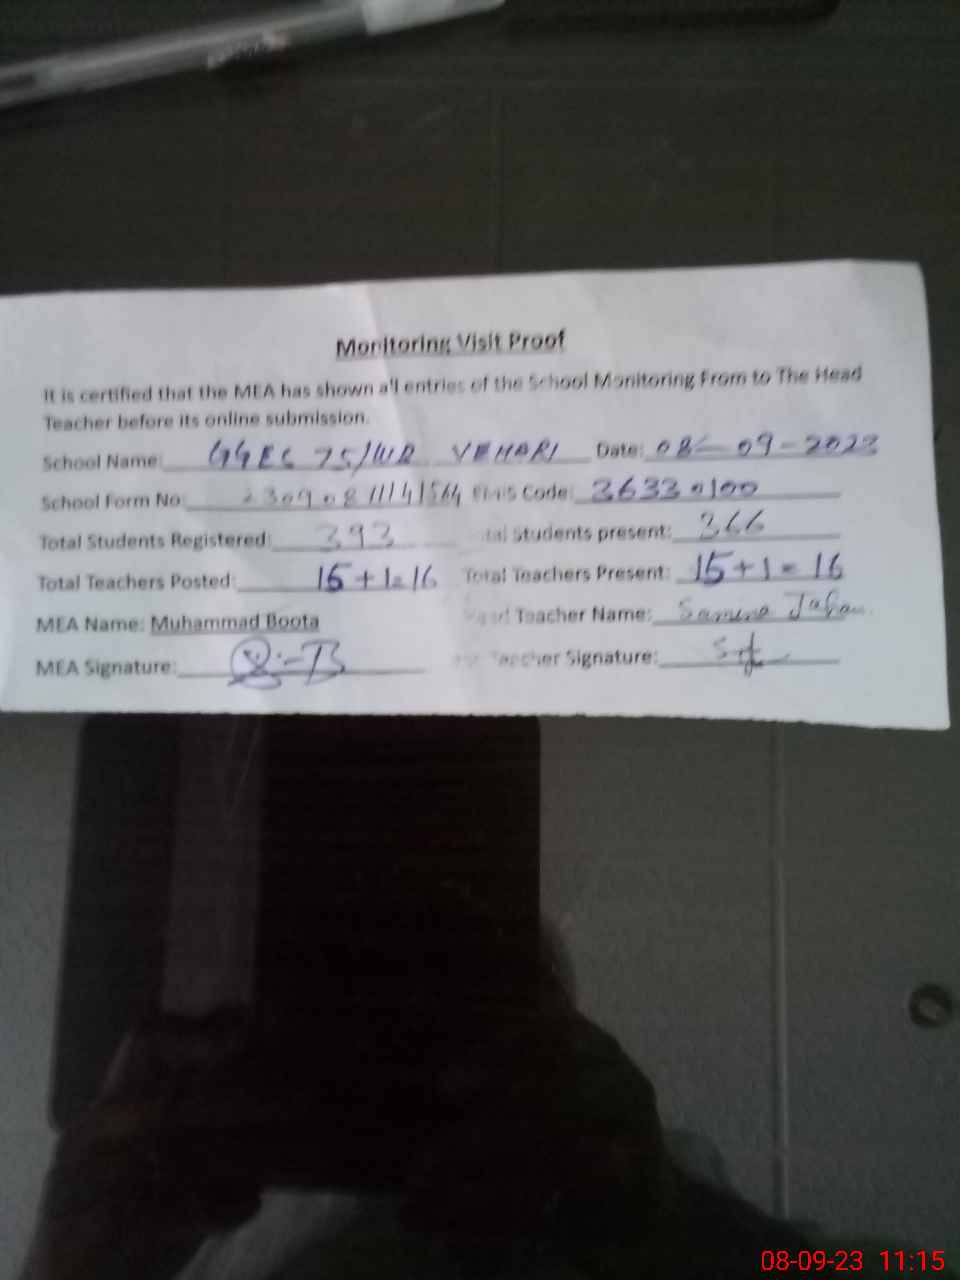 Monitoring Visit Proof
It is certified that the MEA has shown all entries of the School Monitoring From to The Head
Teacher before its online submission.
School Name: GGES 75/WB VEHARI Date: 08-09-2023
School Form No: EMIS Code: 36330100
Total Students Registered: 393 Total Students present: 366
Total Teachers Posted: 15+1=16 Total Teachers Present: 15+1=16
MEA Name: Muhammad Boota Head Teacher Name: Samina
MEA Signature: Teacher Signature:
08-09-23 11:15